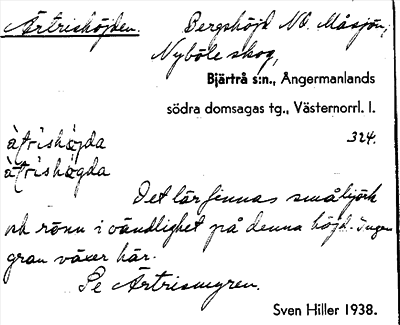 Ärtrishöjden. Bergshöjd NO. Måsjön,
Nyböle skog,
Bjärtrå s:n., Ångermanlands
södra domsagas tg., Västernorrl. l.
324.
Det lär finnas småbjörk
och rönn i oändlighet på denna höjd. Ingen
gran växer här.
Se Ärtrismyren.
Sven Hiller 1938.